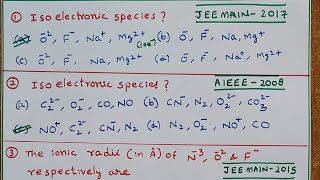 ① Isoelectronic species? JEE MAIN - 2017
(a) O²⁻, F⁻, Na⁺, Mg²⁺ (b) O⁻, F⁻, Na, Mg⁺
(10e⁻)
(c) O²⁻, F⁻, Na, Mg²⁺ (d) O⁻, F⁻, Na⁺, Mg²⁺
② Isoelectronic species? AIEEE - 2008
(a) C₂²⁻, O₂⁻, CO, NO (b) CN⁻, N₂, O₂²⁻, CO₃²⁻
(c) NO⁺, C₂²⁻, CN⁻, N₂ (d) N₂, O₂⁻, NO⁺, CO
③ The ionic radii (in Å) of N⁻³, O²⁻ & F⁻
respectively are JEE MAIN - 2015